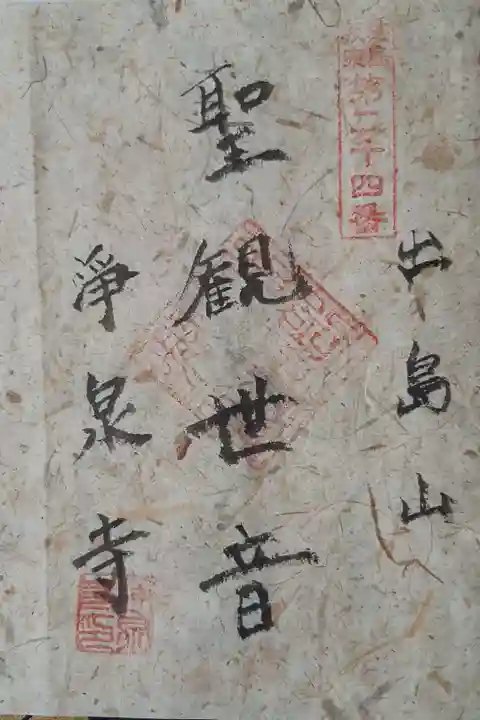 第二十四番
出島山
聖観世音
浄泉寺